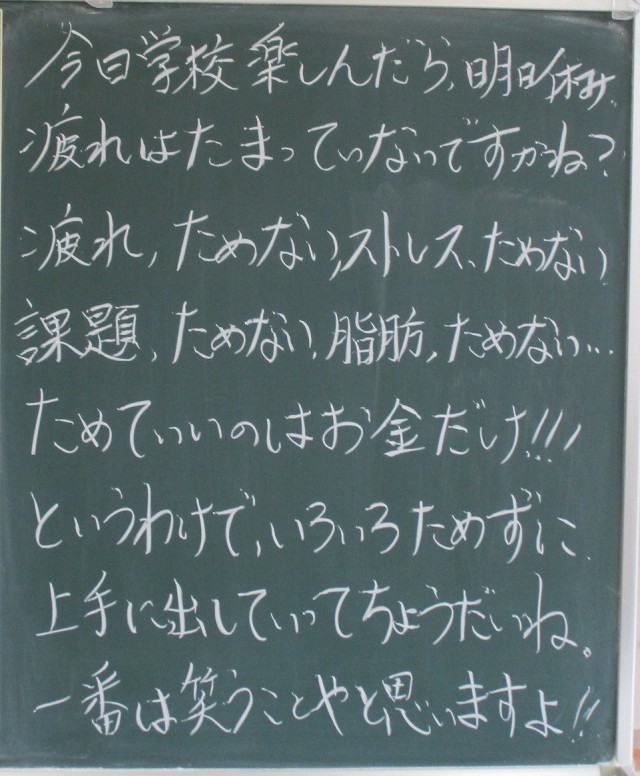 今日学校楽しんだら、明日休み゛
疲れはたまっていないですかね?
疲れ、ためない、ストレス、ためない
課題、ためない、脂肪、ためない…
ためていいのはお金だけ!!!
というわけで、いろいろためずに
上手に出していってちょうだいね。
一番は笑うことやと思いますよ!!